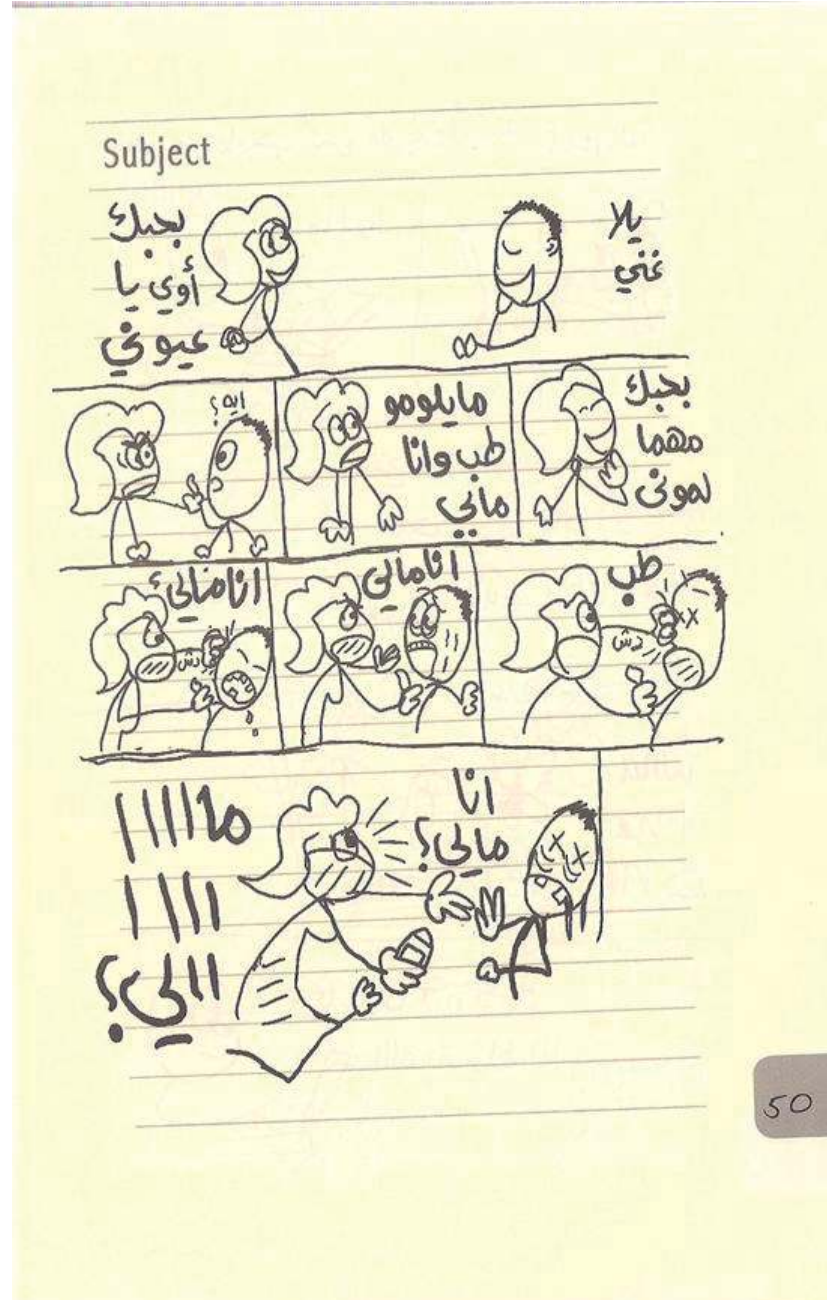 Subject
يلا
غني
بحبك
أوي يا
عيوني
بحبك
مهما
لموني
مايلومو
طب وانا
مالي
ايه؟
طب
دش
انامالي
انامالي؟
دش
انا
مالي؟
مااااا
اااا
االي؟
50